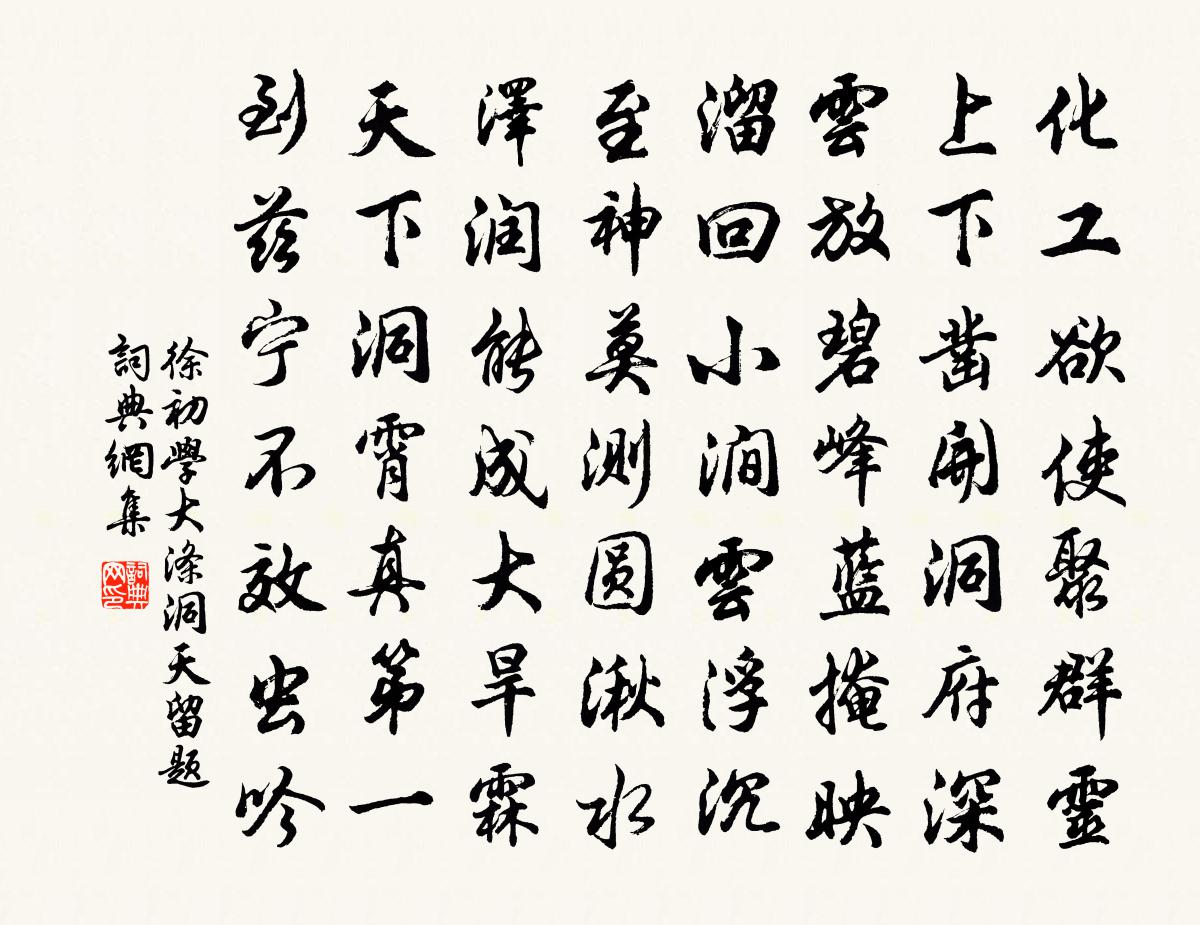 化工欲使聚群靈
上下凿開洞府深
雲放碧峰藍掩映
溜回小澗雲浮沉
至神莫测圆湫水
澤润能成大旱霖
天下洞霄真第一
到茲宁不效虫吟
徐初學大滌洞天留題
詞典網集
詞典网印